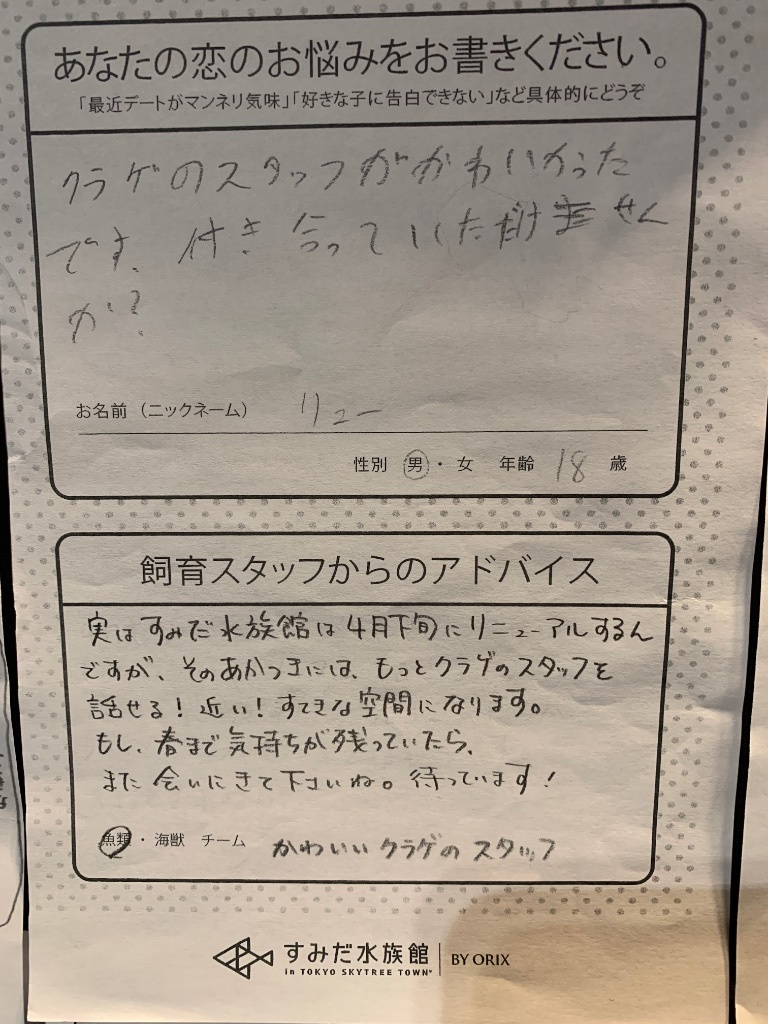 あなたの恋のお悩みをお書きください。
「最近デートがマンネリ気味」「好きな子に告白できない」など具体的にどうぞ
クラゲのスタッフががかわいかった
です。付き合っていただけませんか
か?
お名前（ニックネーム） リュー
性別 男・女 年齢 18 歳
飼育スタッフからのアドバイス
実はすみだ水族館は4月下旬にリニューアルするん
ですが、そのあかつきには、もっとクラゲのスタッフを
話せる!近い!すてきな空間になります。
もし、春まで気持ちが残っていたら、
また会いにきて下さいね。待っています!
魚類・海獣 チーム かわいいクラゲのスタッフ
すみだ水族館 BY ORIX
in TOKYO SKYTREE TOWN®